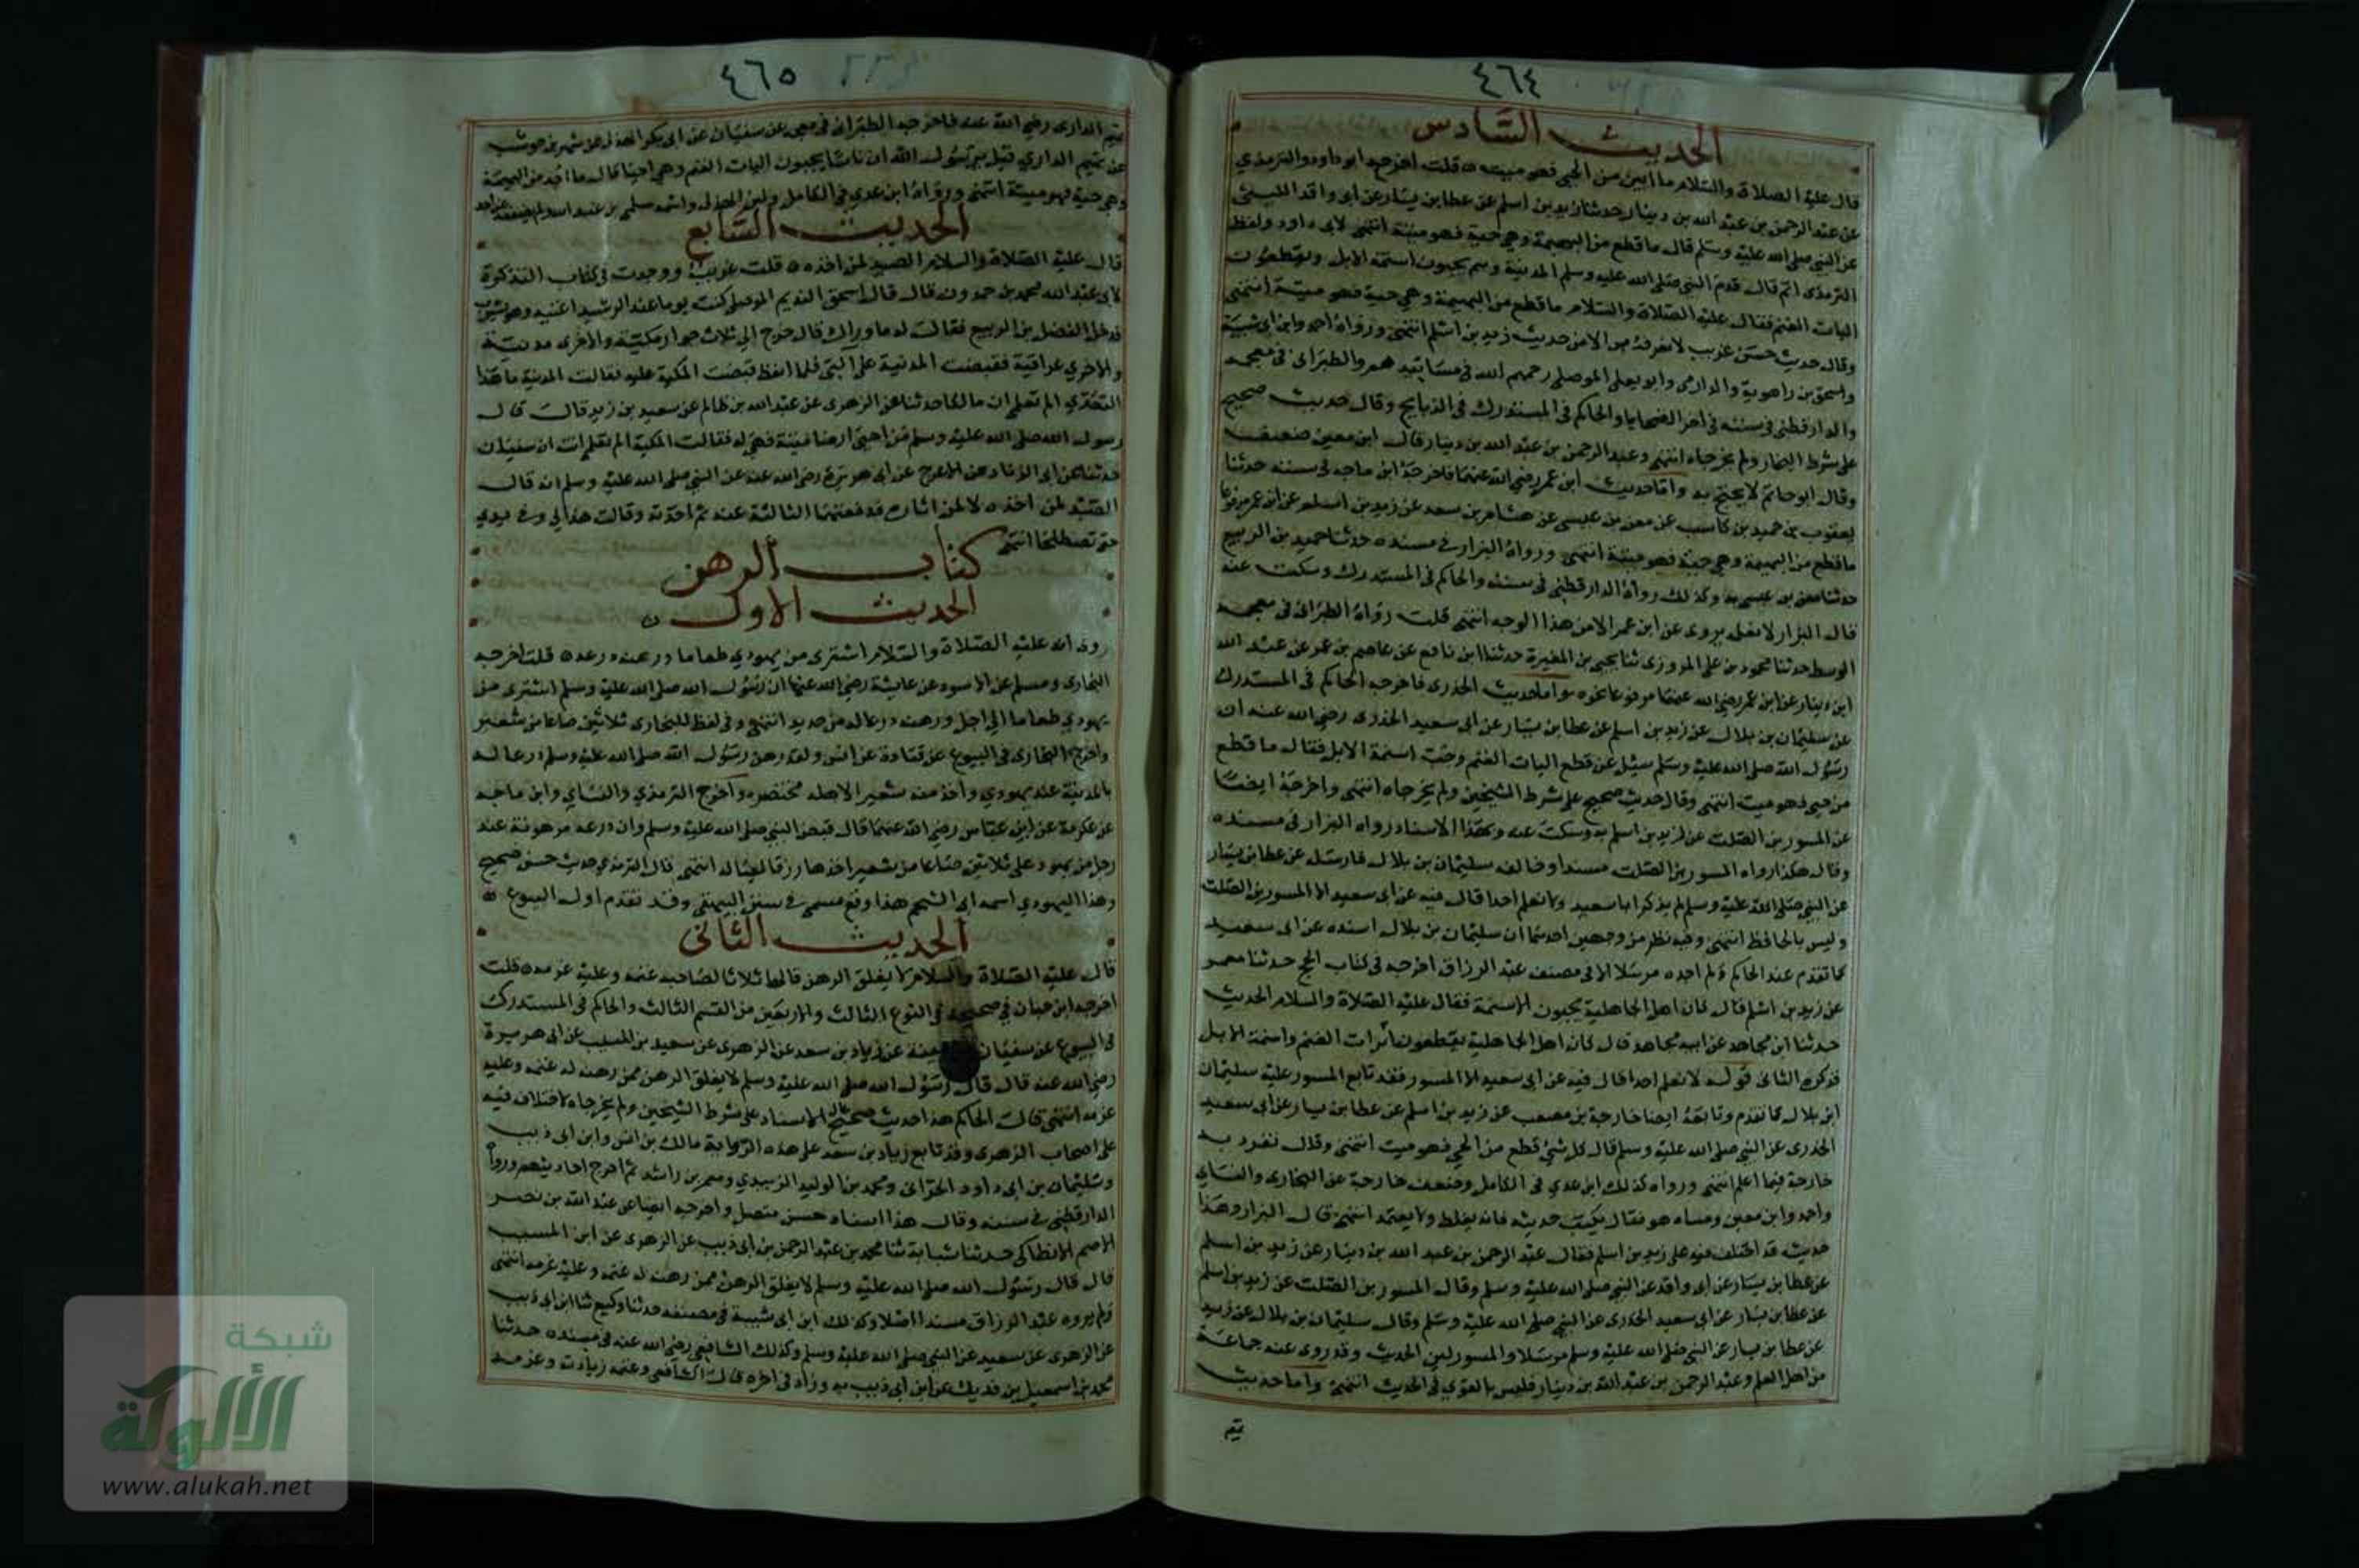 ٤٦٤
الحديث السَّادس
قال عليه الصلاة والسّلام ما ابين من الحي فهو ميت ه قلت اخرجه ابو داود والترمذي
عن عبد الرحمن بن عبد الله بن دينار حدثنا زيد بن اسلم عن عطا بن يسار عن ابى واقد الليثى
عن النبى صلى الله عليه وسلم قال ما قطع من البهيمة وهي حية فهو ميتة انتهى لابى داود ولفظ
الترمذى اتم قال قدم النبى صلى الله عليه وسلم المدينة وهم يجبون اسنمة الابل ويقطعون
اليات الغنم فقال عليه الصّلاة والسّلام ما قطع من البهيمة وهي حية فهو ميتة انتهى
وقال حديث حسن غريب لا نعرفه الا من حديث زيد بن اسلم انتهى ورواه احمد وابن ابى شيبة
واسحق بن راهوية والدارمى وابو يعلى الموصلى رحمهم الله في مسانيدهم والطبرانى في معجمه
والدارقطنى في سننه في اخر الضحايا والحاكم في المستدرك في الذبايح وقال حديث صحيح
على شرط البخارى ولم يخرجاه انتهى وعبد الرحمن بن عبد الله بن دينار قال ابن معين ضعيف
وقال ابو حاتم لا يحتج به وأما حديث ابن عمر رضي الله عنهما فاخرجه ابن ماجه في سننه حدثنا
يعقوب بن حميد بن كاسب عن معن بن عيسى عن هشام بن سعد عن زيد بن اسلم عن ابن عمر مرفوعا
ما قطع من البهيمة وهي حية فهو ميتة انتهى ورواه البزار في مسنده حدثنا حميد بن الربيع
حدثنا معن بن عيسى به وكذلك رواه الدارقطنى في سننه والحاكم في المستدرك وسكت عنه
قال البزار لا نعلم يروى عن ابن عمر الا من هذا الوجه انتهى قلت رواه الطبرانى في معجمه
الوسط حدثنا محمود بن على المروزى ثنا يحيى بن المغيرة حدثنا ابن نافع عن عاصم بن عمر عن عبد الله
ابن دينار عن ابن عمر رضي الله عنهما مرفوعا نحوه سوا واما حديث الخدرى فاخرجه الحاكم في المستدرك
عن سليمان بن بلال عن زيد بن اسلم عن عطا بن يسار عن ابى سعيد الخدرى رضي الله عنه ان
رسول الله صلى الله عليه وسلم سئل عن قطع اليات الغنم وجب اسنمة الابل فقال ما قطع
من حي فهو ميت انتهى وقال حديث صحيح على شرط الشيخين ولم يخرجاه انتهى واخرجه ايضا
عن المسور بن الصلت عن زيد بن اسلم به وسكت عنه وبهذا الاسناد رواه البزار في مسنده
وقال هكذا رواه المسور بن الصلت مسندا وخالفه سليمان بن بلال فارسله عن عطا بن يسار
عن النبي صلى الله عليه وسلم لم يذكر ابا سعيد ولا نعلم احدا قال فيه عن ابى سعيد الا المسور بن الصلت
وليس بالحافظ انتهى وفيه نظر من وجهين احدهما ان سليمان بن بلال اسنده عن ابى سعيد
كما تقدم عند الحاكم ولم اجده مرسلا الا في مصنف عبد الرزاق اخرجه في كتاب الحج حدثنا معمر
عن زيد بن اسلم قال كان اهل الجاهلية يجبون الاسنمة فقال عليه الصّلاة والسلام الحديث
حدثنا ابن مجاهد عن ابيه مجاهد قال كان اهل الجاهلية يقطعون اليات الغنم واسنمة الابل
فذكره الثانى قوله لا نعلم احدا قال فيه عن ابى سعيد الا المسور فقد تابع المسور عليه سليمان
ابن بلال كما تقدم وتابعه ايضا خارجة بن مصعب عن زيد بن اسلم عن عطا بن يسار عن ابى سعيد
الخدرى عن النبي صلى الله عليه وسلم قال كل شئ قطع من الحي فهو ميت انتهى وقال تفرد به
خارجة فيما اعلم انتهى ورواه كذلك ابن عدي في الكامل وضعف خارجة عن البخارى والنساي
واحمد وابن معين ومشاه هو فقال يكتب حديثه فانه يغلط ولا يتعمد انتهى قال البزار وهذا
حديث قد اختلف فيه على زيد بن اسلم فقال عبد الرحمن بن عبد الله بن دينار عن زيد بن اسلم
عن عطا بن يسار عن ابى واقد عن النبي صلى الله عليه وسلم وقال المسور بن الصلت عن زيد بن اسلم
عن عطا بن يسار عن ابى سعيد الخدرى عن النبي صلى الله عليه وسلم وقال سليمان بن بلال عن زيد
عن عطا بن يسار عن النبي صلى الله عليه وسلم مرسلا والمسور لين الحديث وقد روى عنه جماعة
من اهل العلم وعبد الرحمن بن عبد الله بن دينار فليس بالقوي في الحديث انتهى واما حديث
تميم
٤٦٥
تميم الدارى رضي الله عنه فاخرجه الطبرانى في معجمه عن سفيان عن ابى بكر الهذلى عن شهر بن حوشب
عن تميم الداري قيل يا رسول الله ان ناسا يجبون اليات الغنم وهي احيا قال ما اخذ من البهيمة
وهي حية فهو ميتة انتهى ورواه ابن عدي في الكامل ولين الهذلى واسمه سلمى بن عبد الله
الحديث السَّابع
قال عليه الصّلاة والسلام الصيد لمن اخذه ه قلت غريب ووجدت في كتاب التذكرة
لابى عبد الله محمد بن حمدون قال قال اسحق النديم الموصلى كنت يوما عند الرشيد اغنيه وهو يشرب
فدخل الفضل بن الربيع فقال له ما وراك قال خرج الي ثلاث جوار مكية والاخرى مدنية
والاخري عراقية فقبضت المدنية على التى فلما انعظ قبضت المكية عليه فقالت المدنية ما هذا
التعدي الم تعلم ان مالكا حدثنا عن الزهرى عن عبد الله بن ظالم عن سعيد بن زيد قال قال
رسول الله صلى الله عليه وسلم من احيى ارضا ميتة فهي له فقالت المكية الم تعلم انت ان سفيان
حدثنا عن ابى الزناد عن الاعرج عن ابى هريرة رضي الله عنه عن النبي صلى الله عليه وسلم انه قال
الصيد لمن اخذه لا لمن اثاره فدفعتهما الثالثة عنه ثم اخذته وقالت هذا لي وفي يدي
حتى تصطلحا انتهى
كتاب الرهن
الحديث الاول
روى انه عليه الصّلاة والسّلام اشترى من يهودي طعاما ورهنه درعه ه قلت اخرجه
البخارى ومسلم عن الاسود عن عايشة رضي الله عنها ان رسول الله صلى الله عليه وسلم اشترى من
يهودي طعاما الي اجل ورهنه درعا له من حديد انتهى وفي لفظ للبخارى ثلاثين صاعا من شعير
واخرج البخارى في البيوع عن قتادة عن انس ولقد رهن رسول الله صلى الله عليه وسلم درعا له
بالمدينة عند يهودي واخذ منه شعيرا لاهله مختصر واخرج الترمذي والنساي وابن ماجه
عن عكرمة عن ابن عباس رضي الله عنهما قال قبض النبي صلى الله عليه وسلم وان درعه مرهونة عند
رجل من يهود على ثلاثين صاعا من شعير اخذها رزقا لعياله انتهى قال الترمذي حديث حسن صحيح
وهذا اليهودي اسمه ابى الشحم هذا وقع مسمى في سنن البيهقى وقد تقدم اول البيوع ه
الحديث الثانى
قال عليه الصّلاة والسلام لا يغلق الرهن قالها ثلاثا لصاحبه غنمه وعليه غرمه ه قلت
اخرجه ابن حبان في صحيحه في النوع الثالث والاربعين من القسم الثالث والحاكم في المستدرك
في البيوع عن سفيان بن عيينة عن زياد بن سعد عن الزهرى عن سعيد بن المسيب عن ابى هريرة
رضي الله عنه قال قال رسول الله صلى الله عليه وسلم لا يغلق الرهن ممن رهنه له غنمه وعليه
غرمه انتهى قال الحاكم هذا حديث صحيح الاسناد على شرط الشيخين ولم يخرجاه لاختلاف فيه
على اصحاب الزهرى وقد تابع زياد بن سعد على هذه الرواية مالك بن انس وابن ابى ذيب
وسليمان بن ابى داود الحرانى ومحمد بن الوليد الزبيدي ومعمر بن راشد ثم اخرج احاديثهم ورواه
الدارقطنى في سننه وقال هذا اسناد حسن متصل واخرجه ايضا عن عبد الله بن نصر
الاصم الانطاكى حدثنا شبابة ثنا محمد بن عبد الرحمن بن ابى ذيب عن الزهرى عن ابن المسيب
قال قال رسول الله صلى الله عليه وسلم لا يغلق الرهن ممن رهنه له غنمه وعليه غرمه انتهى
ولم يروه عبد الرزاق مسندا اصلا وكذلك ابن ابى شيبة في مصنفه حدثنا وكيع ثنا ابن ابى ذيب
عن الزهرى عن سعيد عن النبي صلى الله عليه وسلم وكذلك الشافعي رضي الله عنه في مسنده حدثنا
محمد بن اسمعيل بن فديك عن ابن ابى ذيب به وزاد في اخره قال الشافعى وغنمه زيادته وغرمه
شبكة
الألوكة
www.alukah.net